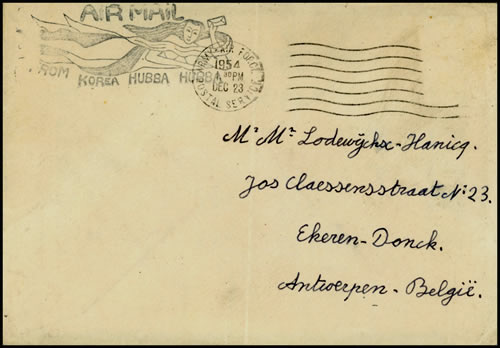 AIR MAIL
FROM KOREA HUBBA HUBBA
ARMY-AIR FORCE
1954
4 30 PM
DEC 23
POSTAL SERV
Mr Mr Lodewijckx-Hanicq.
Jos Claessensstraat Nr: 23.
Ekeren-Donck.
Antwerpen - België.